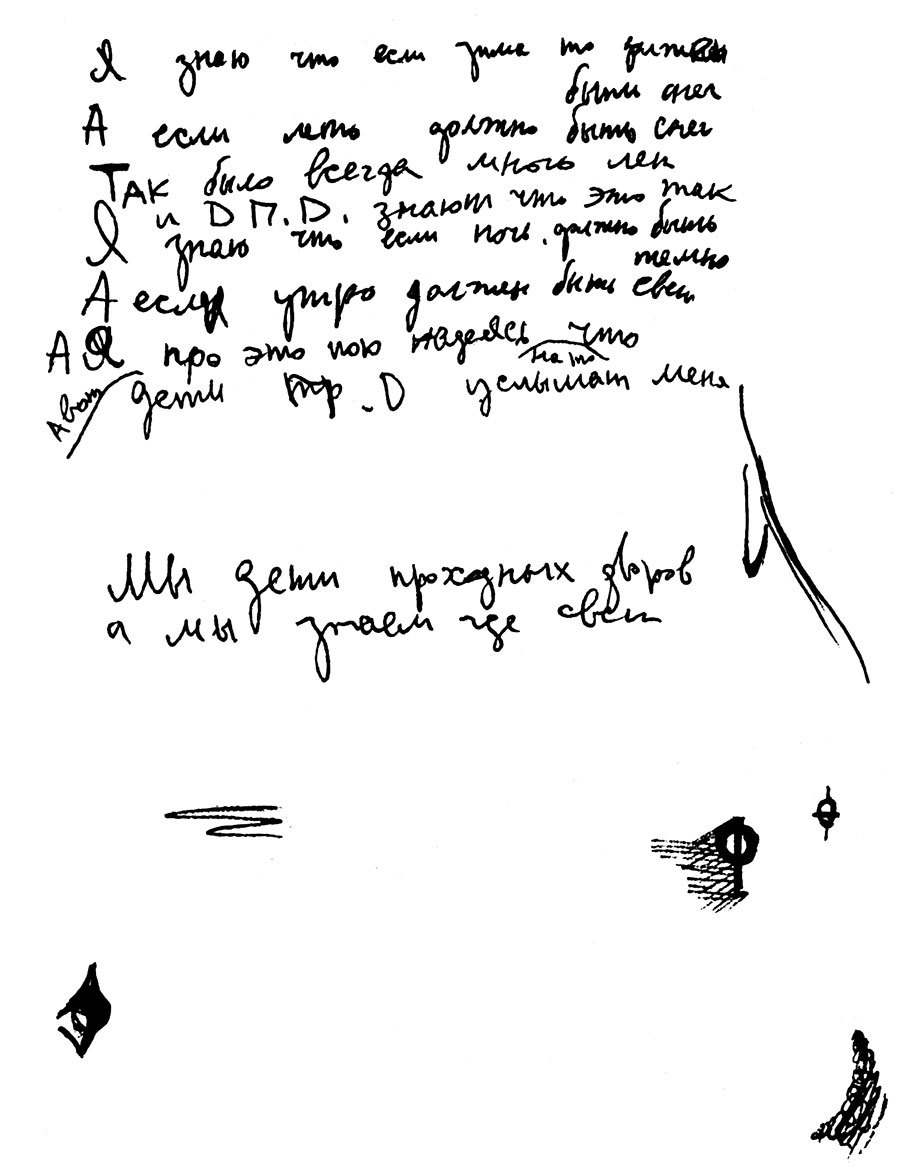 Я знаю что если зима то должен
быть снег
А если лето должно быть снег
ТАК было всегда много лет
и D П.D. знают что это так
Я знаю что если ночь, должно быть
темно
А если утро должен быть свет
А Я про это пою надеясь что
на то
А вот дети пр. D услышат меня
Мы дети проходных дворов
а мы знаем где свет